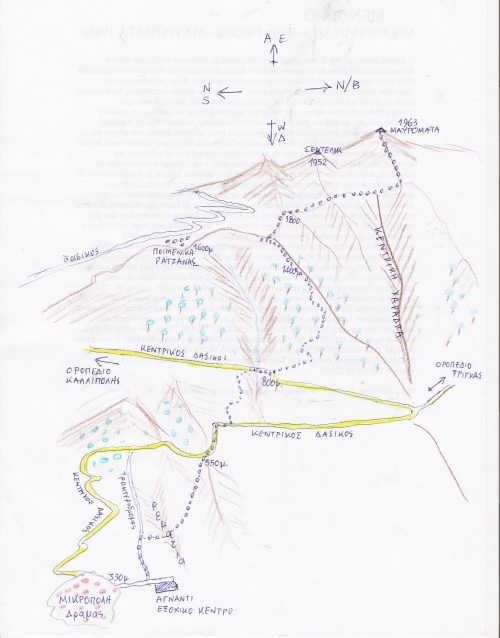 Α Ε
Ν
S
N/B
W
Δ
1963
ΜΑΥΡΟΜΑΤΑ
1952
1800
ΔΑΣΙΚΟΣ
ΠΟΙΜΕΝΙΚΑ
ΡΑΤΖΑΝΑΣ
1600μ
1400μ
ΚΕΝΤΡΙΚΗ ΧΑΡΑΔΡΑ
ΚΕΝΤΡΙΚΟΣ ΔΑΣΙΚΟΣ
ΟΡΟΠΕΔΙΟ
ΚΑΛΛΙΠΟΛΗΣ
800μ.
ΟΡΟΠΕΔΙΟ
ΤΡΙΓΚΑΣ
ΚΕΝΤΡΙΚΟΣ ΔΑΣΙΚΟΣ
550μ.
ΚΕΝΤΡΙΚΟΣ ΔΑΣΙΚΟΣ
330μ
ΜΙΚΡΟΠΟΛΗ
Δράμας
ΑΓΝΑΝΤΙ
ΕΞΟΧΙΚΟ ΚΕΝΤΡΟ